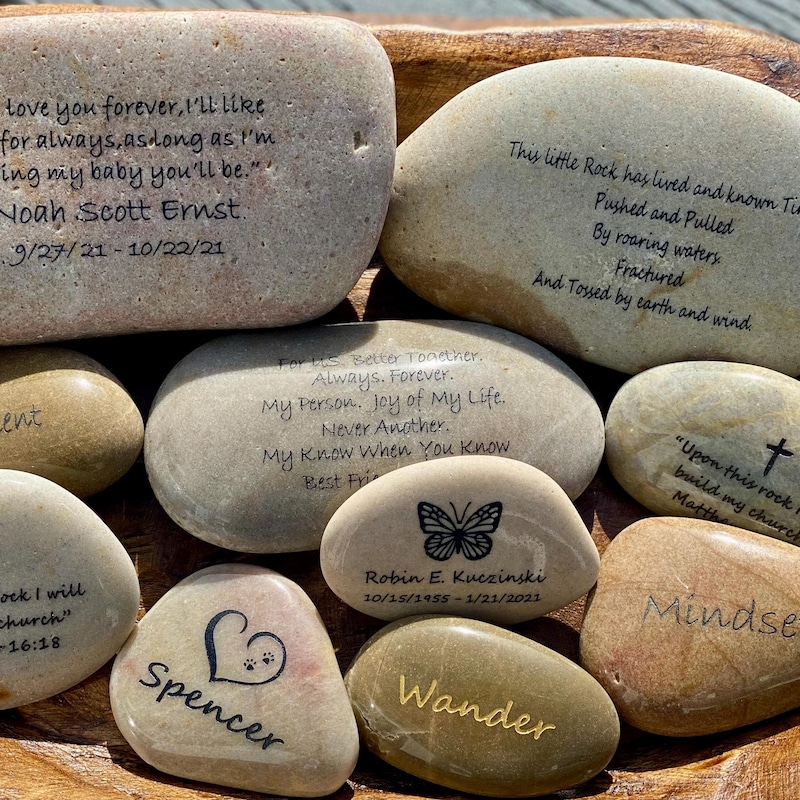 love you forever, I'll like
for always, as long as I'm
ing my baby you'll be."
Noah Scott Ernst
9/27/21 - 10/22/21
This little Rock has lived and known Ti
Pushed and Pulled
By roaring waters.
Fractured
And Tossed by earth and wind.
ent
For US. Better Together.
Always. Forever.
My Person. Joy of My Life.
Never Another.
My Know When You Know
Best Frie
"Upon this rock I
build my church
Matthe
ock I will
church"
16:18
Robin E. Kuczinski
10/15/1955 - 1/21/2021
Mindse
Spencer
Wander